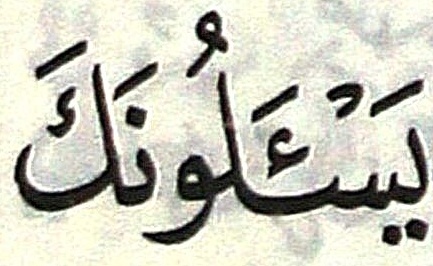 يَسْئَلُونَكَ